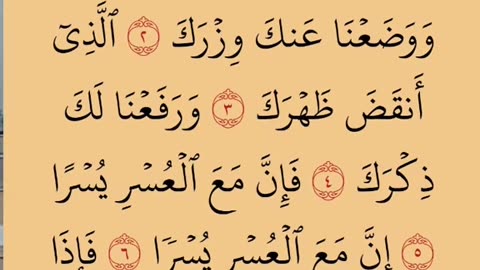 وَوَضَعۡنَا عَنكَ وِزۡرَكَ ٢ ٱلَّذِيٓ
أَنقَضَ ظَهۡرَكَ ٣ وَرَفَعۡنَا لَكَ
ذِكۡرَكَ ٤ فَإِنَّ مَعَ ٱلۡعُسۡرِ يُسۡرًا
٥ إِنَّ مَعَ ٱلۡعُسۡرِ يُسۡرٗا ٦ فَإِذَا